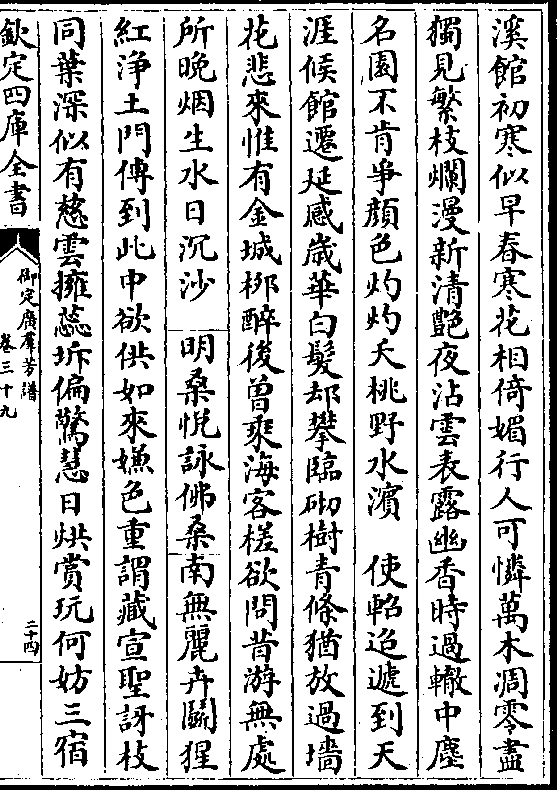 溪館初寒似早春寒花相倚媚行人可憐萬木凋零盡
獨見繁枝爛漫新清艷夜沾雲表露幽香時過轍中塵
名園不肯爭顔色灼灼夭桃野水濱　使軺迢遞到天
涯候館遷延感歳華白髮却攀臨砌樹青條猶放過墻
花悲來惟有金城栁醉後曾乘海客槎欲問昔游無處
所晩烟生水日沉沙　明桑悅詠佛桑南無麗卉鬬猩
紅浄土門傳到此中欲供如來嫌色重謂藏宣聖訝枝
同葉深似有慈雲擁蕊坼偏驚慧日烘賞玩何妨三宿
欽定四庫全書
御定廣羣芳譜
卷三十九
二十四